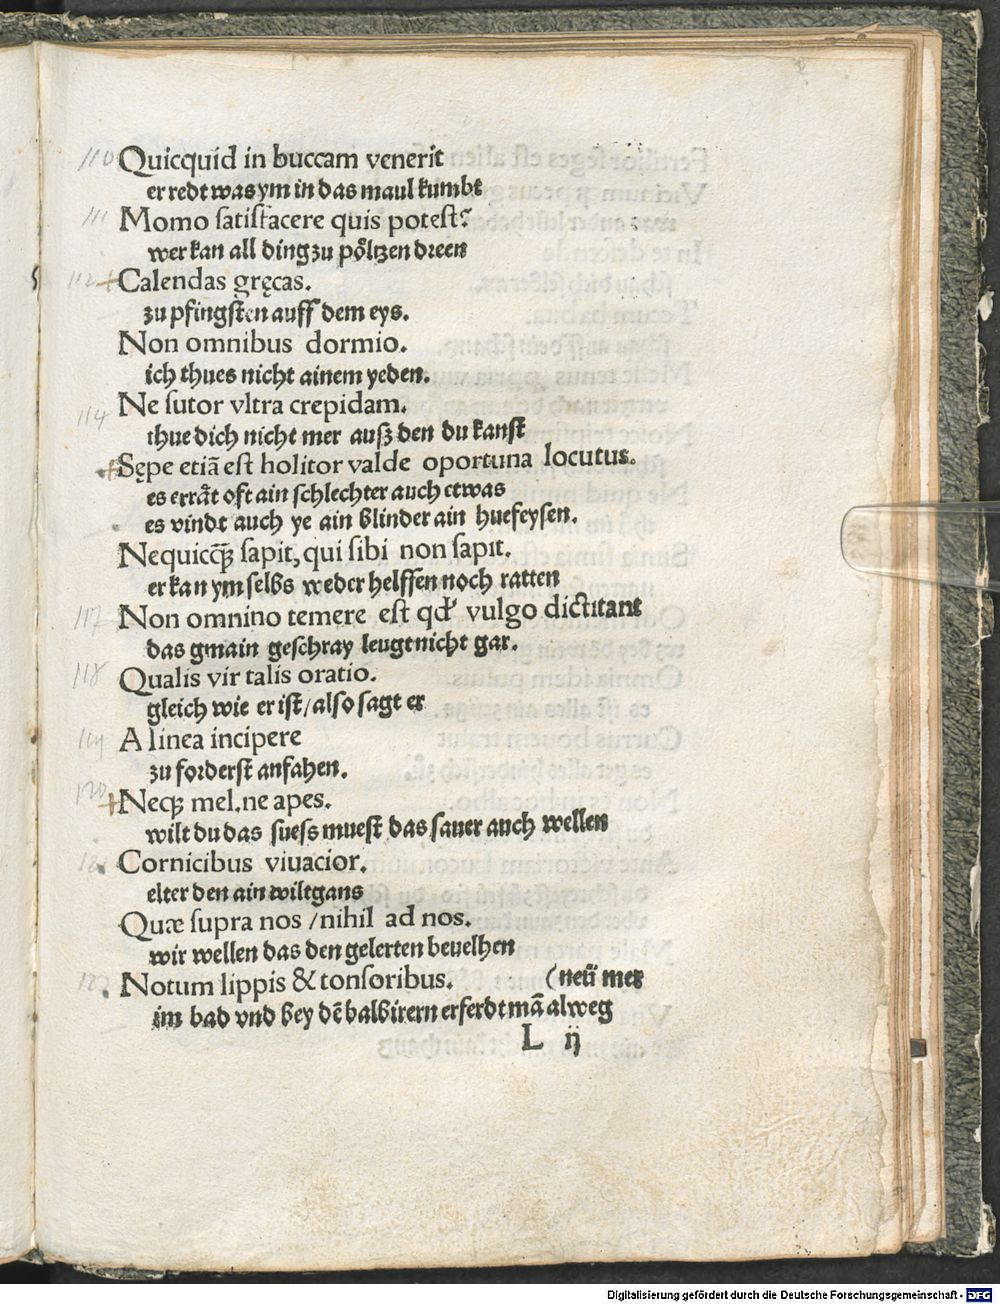 110 Quicquid in buccam venerit
er redt was ym in das maul kumbt
111 Momo ſatiſfacere quis poteſt?
wer kan all ding zu pöltzen dreen
112 Calendas gręcas.
zu pfingſten auff dem eys.
Non omnibus dormio.
ich thues nicht ainem yeden.
114 Ne ſutor vltra crepidam.
thue dich nicht mer auſz den du kanſt
Sępe etiā eſt holitor valde oportuna locutus.
es errät oft ain ſchlechter auch etwas
es vindt auch ye ain blinder ain huefeyſen.
Nequicq̄ʒ ſapit, qui ſibi non ſapit.
er kan ym ſelbs weder helffen noch ratten
117 Non omnino temere eſt qd' vulgo dictitant
das gmain geſchray leugt nicht gar.
118 Qualis vir talis oratio.
gleich wie er iſt/alſo ſagt er
119 A linea incipere
zu forderſt anfahen.
120 Neqʒ mel, ne apes.
wilt du das ſueſs mueſt das ſauer auch wellen
121 Cornicibus viuacior.
elter den ain wiltgans
Quæ ſupra nos /nihil ad nos.
wir wellen das den gelerten beuelhen
123 Notum lippis & tonſoribus. (neü mer
im bad vnd bey dē balbirern erferdt mā alweg
L ij
Digitalisierung gefördert durch die Deutsche Forschungsgemeinschaft - DFG